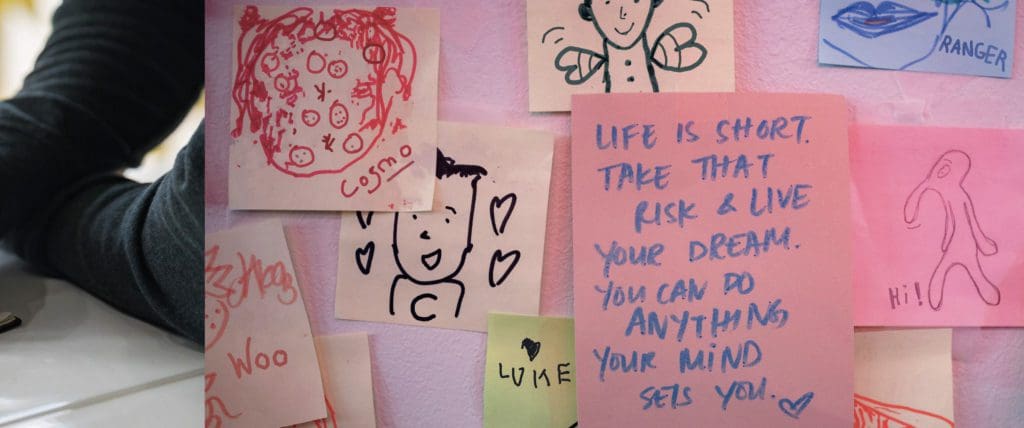 COSMO
RANGER
C
Woo
LUKE
LIFE IS SHORT.
TAKE THAT
RISK & LIVE
YOUR DREAM.
YOU CAN DO
ANYTHING
YOUR MIND
SETS YOU.
Hi!